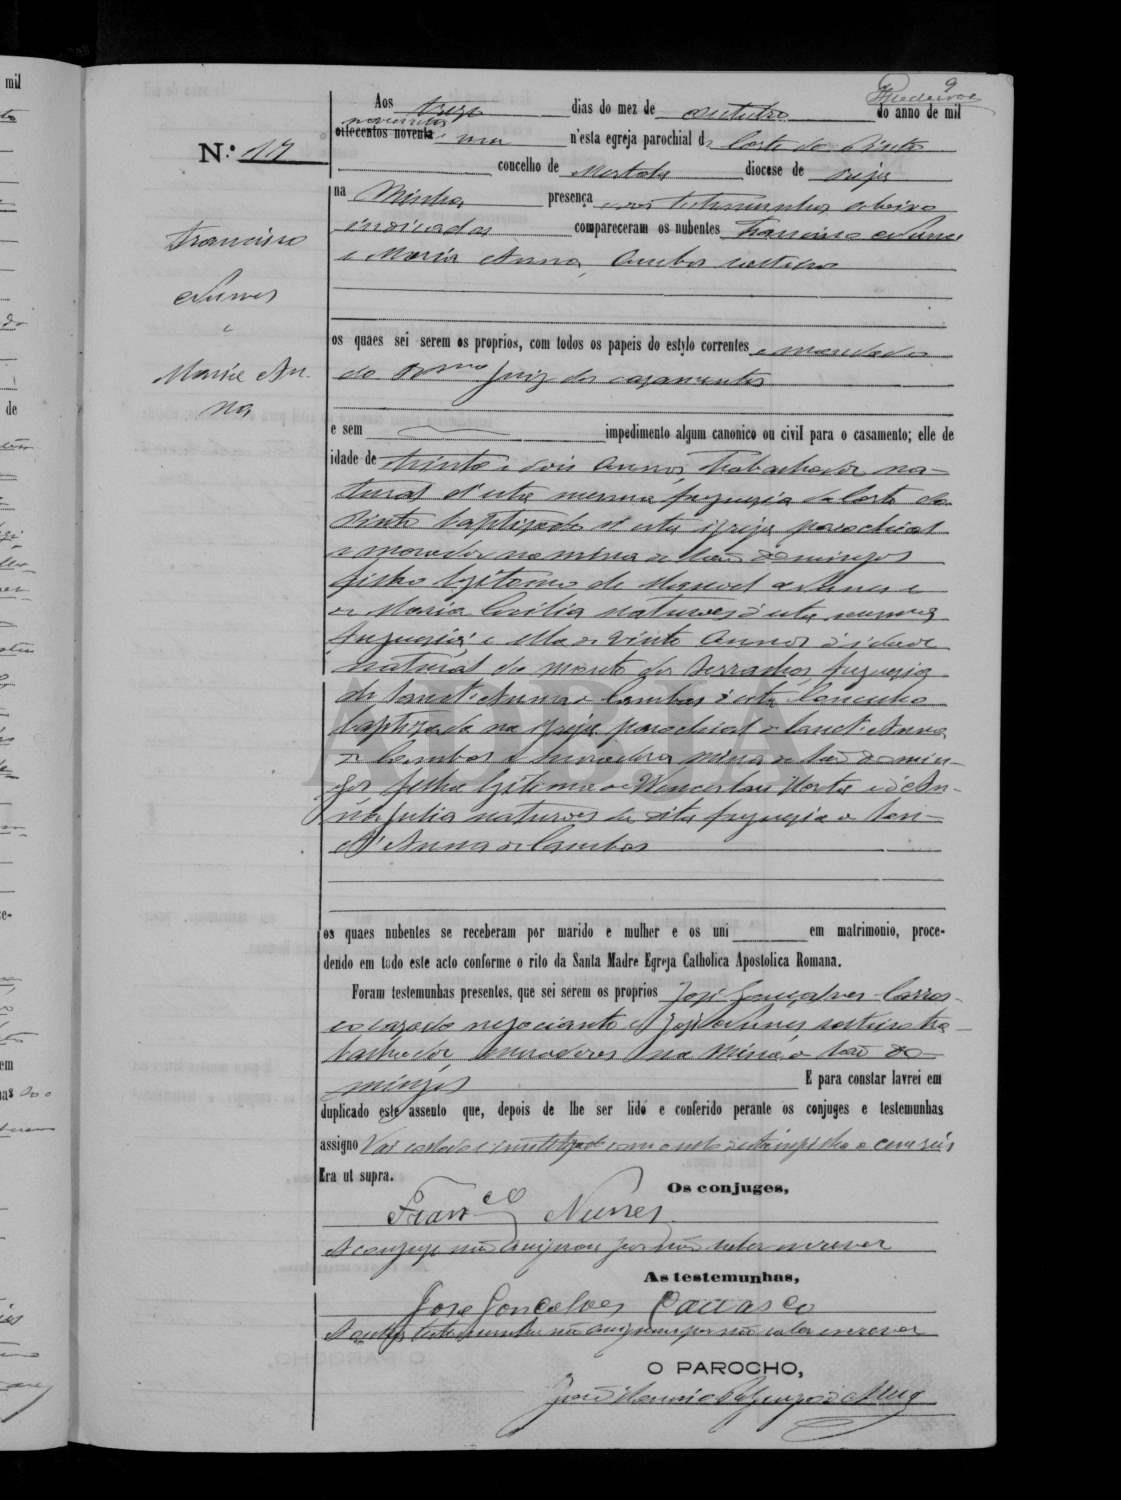 9
Aos treze dias do mez de outubro do anno de mil
novecentos
oitocentos noventa e um n'esta egreja parochial de Corte do Pinto
N.º 17
concelho de Mertola diocese de Beja
na Minha presença e das testemunhas abaixo
indicadas compareceram os nubentes Francisco Nunes
e Maria Anna, ambos solteiros
Francisco
Nunes
e
Maria An-
na
os quaes sei serem os proprios, com todos os papeis do estylo correntes e mandado
do Rmo Juiz dos casamentos
e sem impedimento algum canonico ou civil para o casamento; elle de
idade de trinta e dois annos, trabalhador, na-
tural d'esta mesma freguezia da Corte do
Pinto baptizado n'esta igreja parochial
e morador na mina de São Domingos
filho legitimo de Manoel Nunes e
de Maria Cecilia naturaes d'esta mesma
freguezia; e ella de vinte annos d'idade
natural do monte dos Serralhos, freguezia
de Sanct'Anna de Cambas d'este Concelho
baptizada na igreja parochial de Sanct'Anna
de Cambas e moradora mina de São Domin-
gos filha legitima de Wenceslau Horta e d'An-
na Julia naturaes da dita freguezia de San-
ct'Anna de Cambas
os quaes nubentes se receberam por marido e mulher e os uni em matrimonio, proce-
dendo em todo este acto conforme o rito da Santa Madre Egreja Catholica Apostolica Romana.
Foram testemunhas presentes, que sei serem os proprios José Gonçalves Carras-
co cazado negociante e José Nunes solteiro tra-
balhador, moradores na Mina de São Do-
mingos E para constar lavrei em
duplicado este assento que, depois de lhe ser lido e conferido perante os conjuges e testemunhas
assigno Vai collado e inutilizado com o sello de estampilha de cem réis
Era ut supra.
Os conjuges,
Franco Nunes
A conjuge não assignou por não saber escrever
As testemunhas,
Jose Goncalves Carrasco
A outra testemunha não assignou por não saber escrever
O PAROCHO,
ADBJA